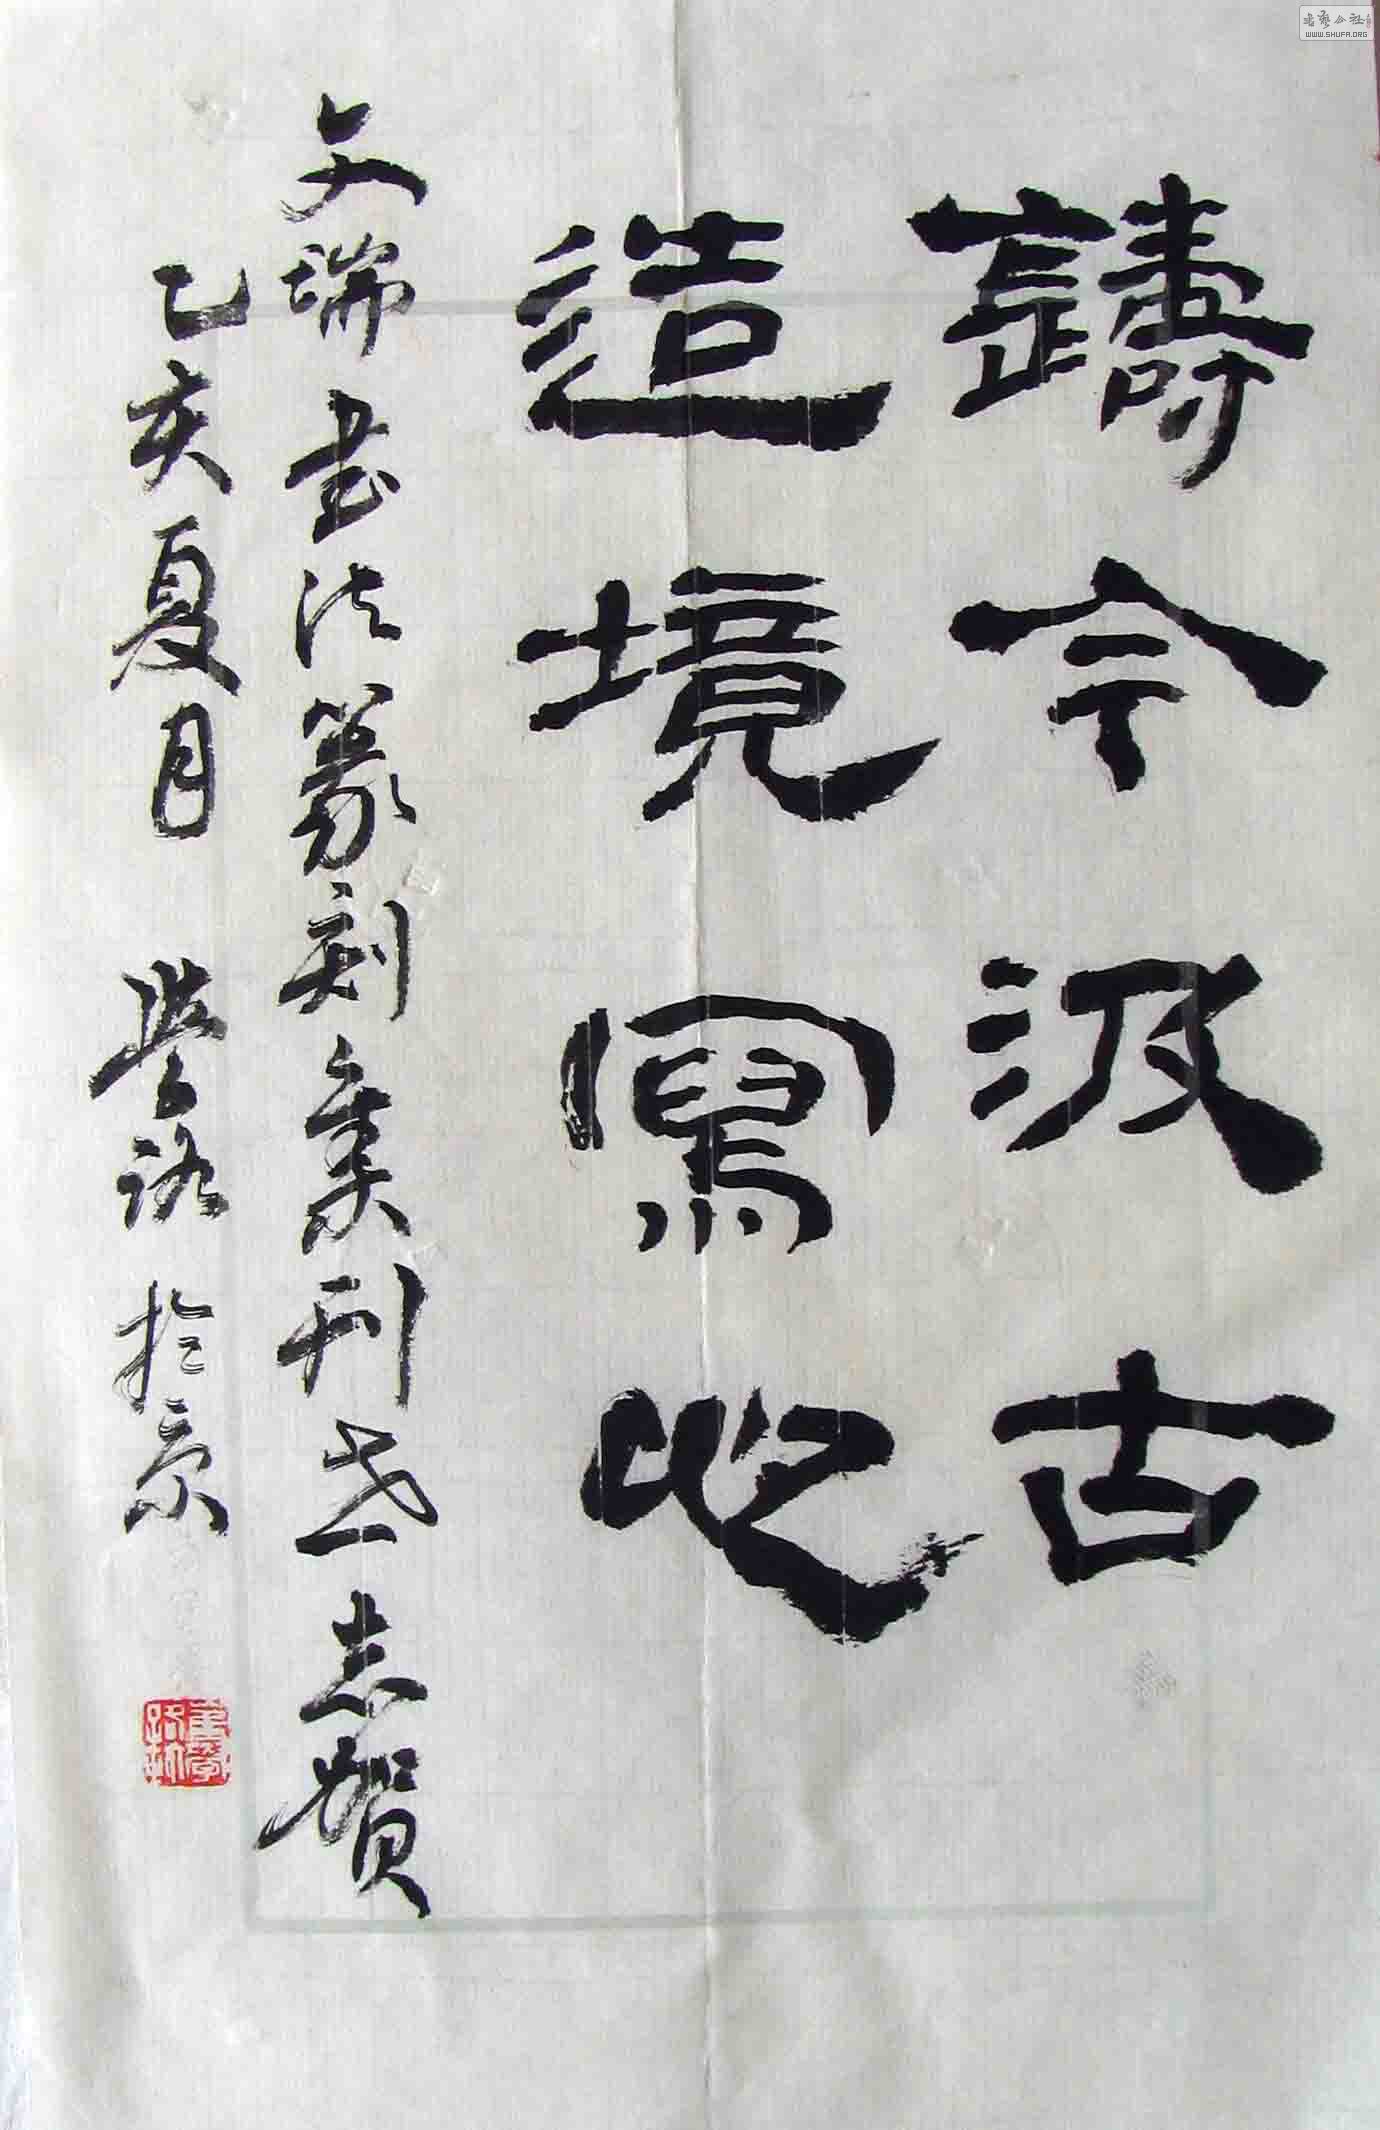 鑄今汲古
造境寫心
文瑞書法篆刻集刊世志賀
乙亥夏月 於京
書藝公社
WWW.SHUFA.ORG